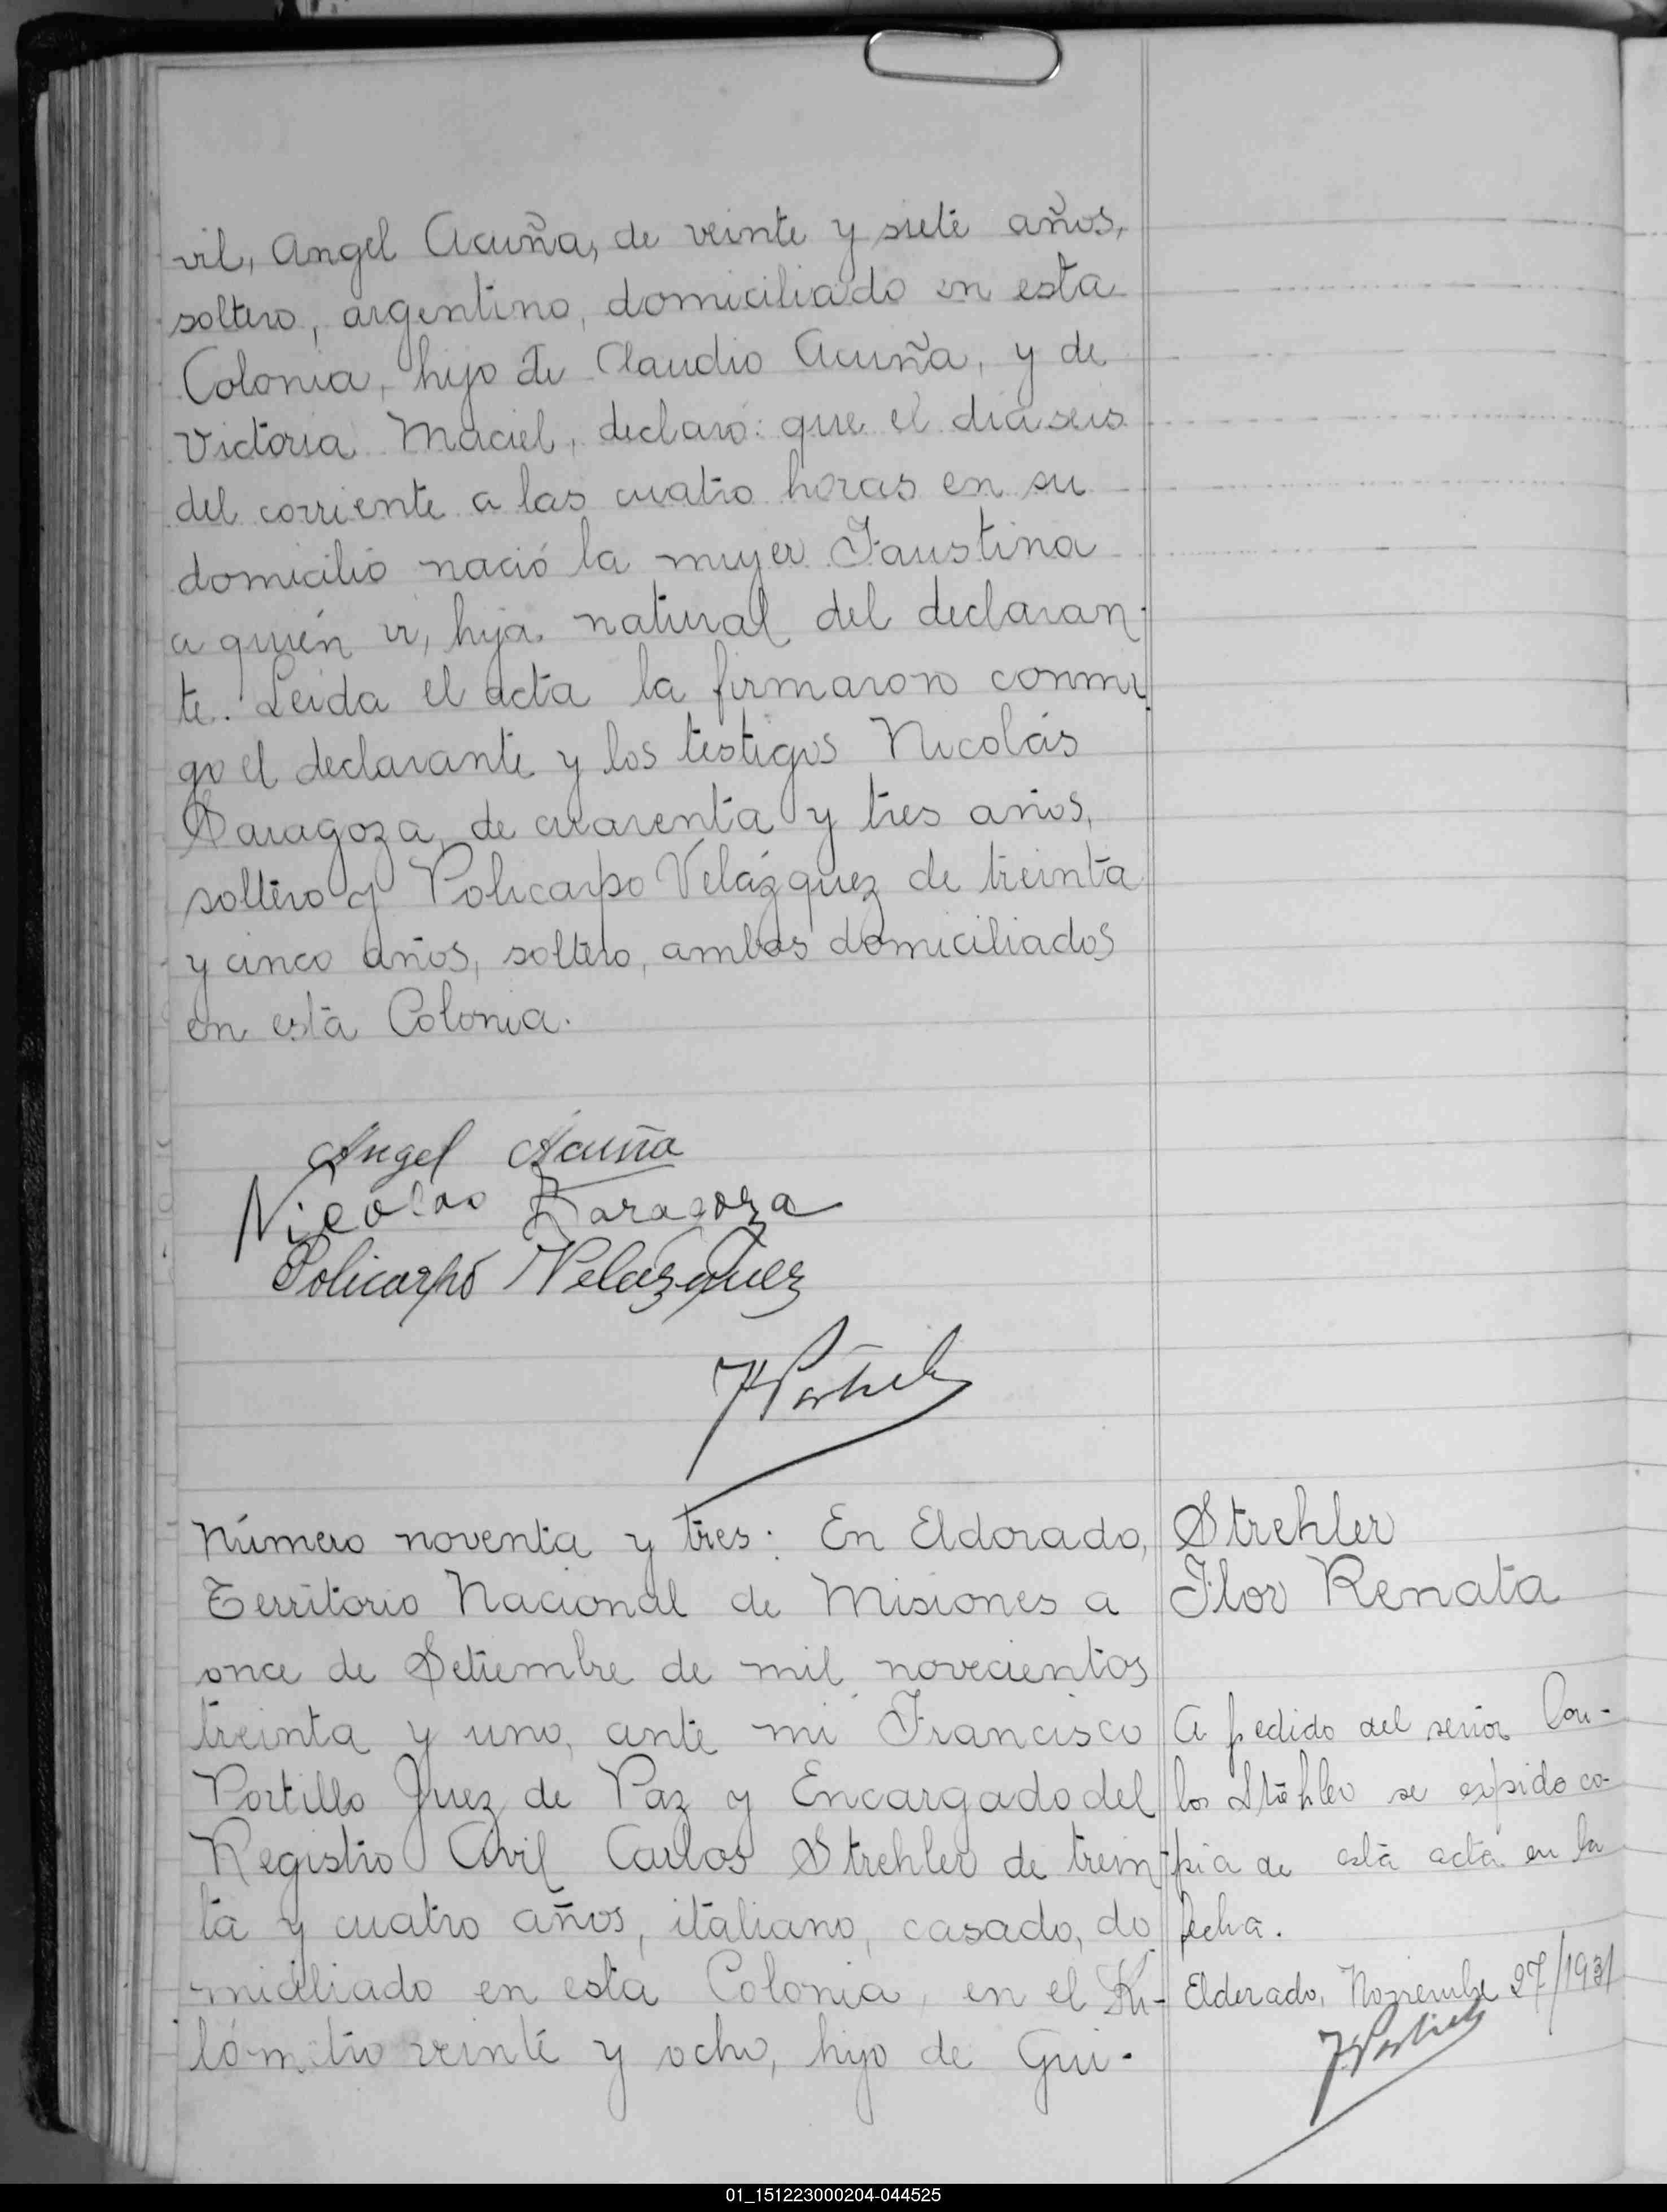 vil, Angel Acuña, de veinte y siete años,
soltero, argentino, domiciliado en esta
Colonia, hijo de Claudio Acuña, y de
Victoria Maciel, declaró: que el día seis
del corriente a las cuatro horas en su
domicilio nació la mujer Faustina
a quién vi, hija natural del declaran-
te. Leida el acta la firmaron conmi
go el declarante y los testigos Nicolás
Saragoza, de cuarenta y tres años,
soltero y Policarpo Velázquez de treinta
y cinco años, soltero, ambos domiciliados
en esta Colonia.
Angel Acuña
Nicolas Zaragoza
Policarpo Velazquez
FPortillo
Número noventa y tres: En Eldorado,
Territorio Nacional de Misiones a
once de Setiembre de mil novecientos
treinta y uno, ante mi Francisco
Portillo Juez de Paz y Encargado del
Registro Civil Carlos Strehler de trein-
ta y cuatro años, italiano, casado, do
miciliado en esta Colonia, en el Ki-
lómetro veinte y ocho, hijo de Gui-
Strehler
Flor Renata
A pedido del señor Car-
los Strehler se expide co-
pia de esta acta en la
fecha.
Eldorado, Noviembre 27/1931
FPortillo
01_151223000204-044525